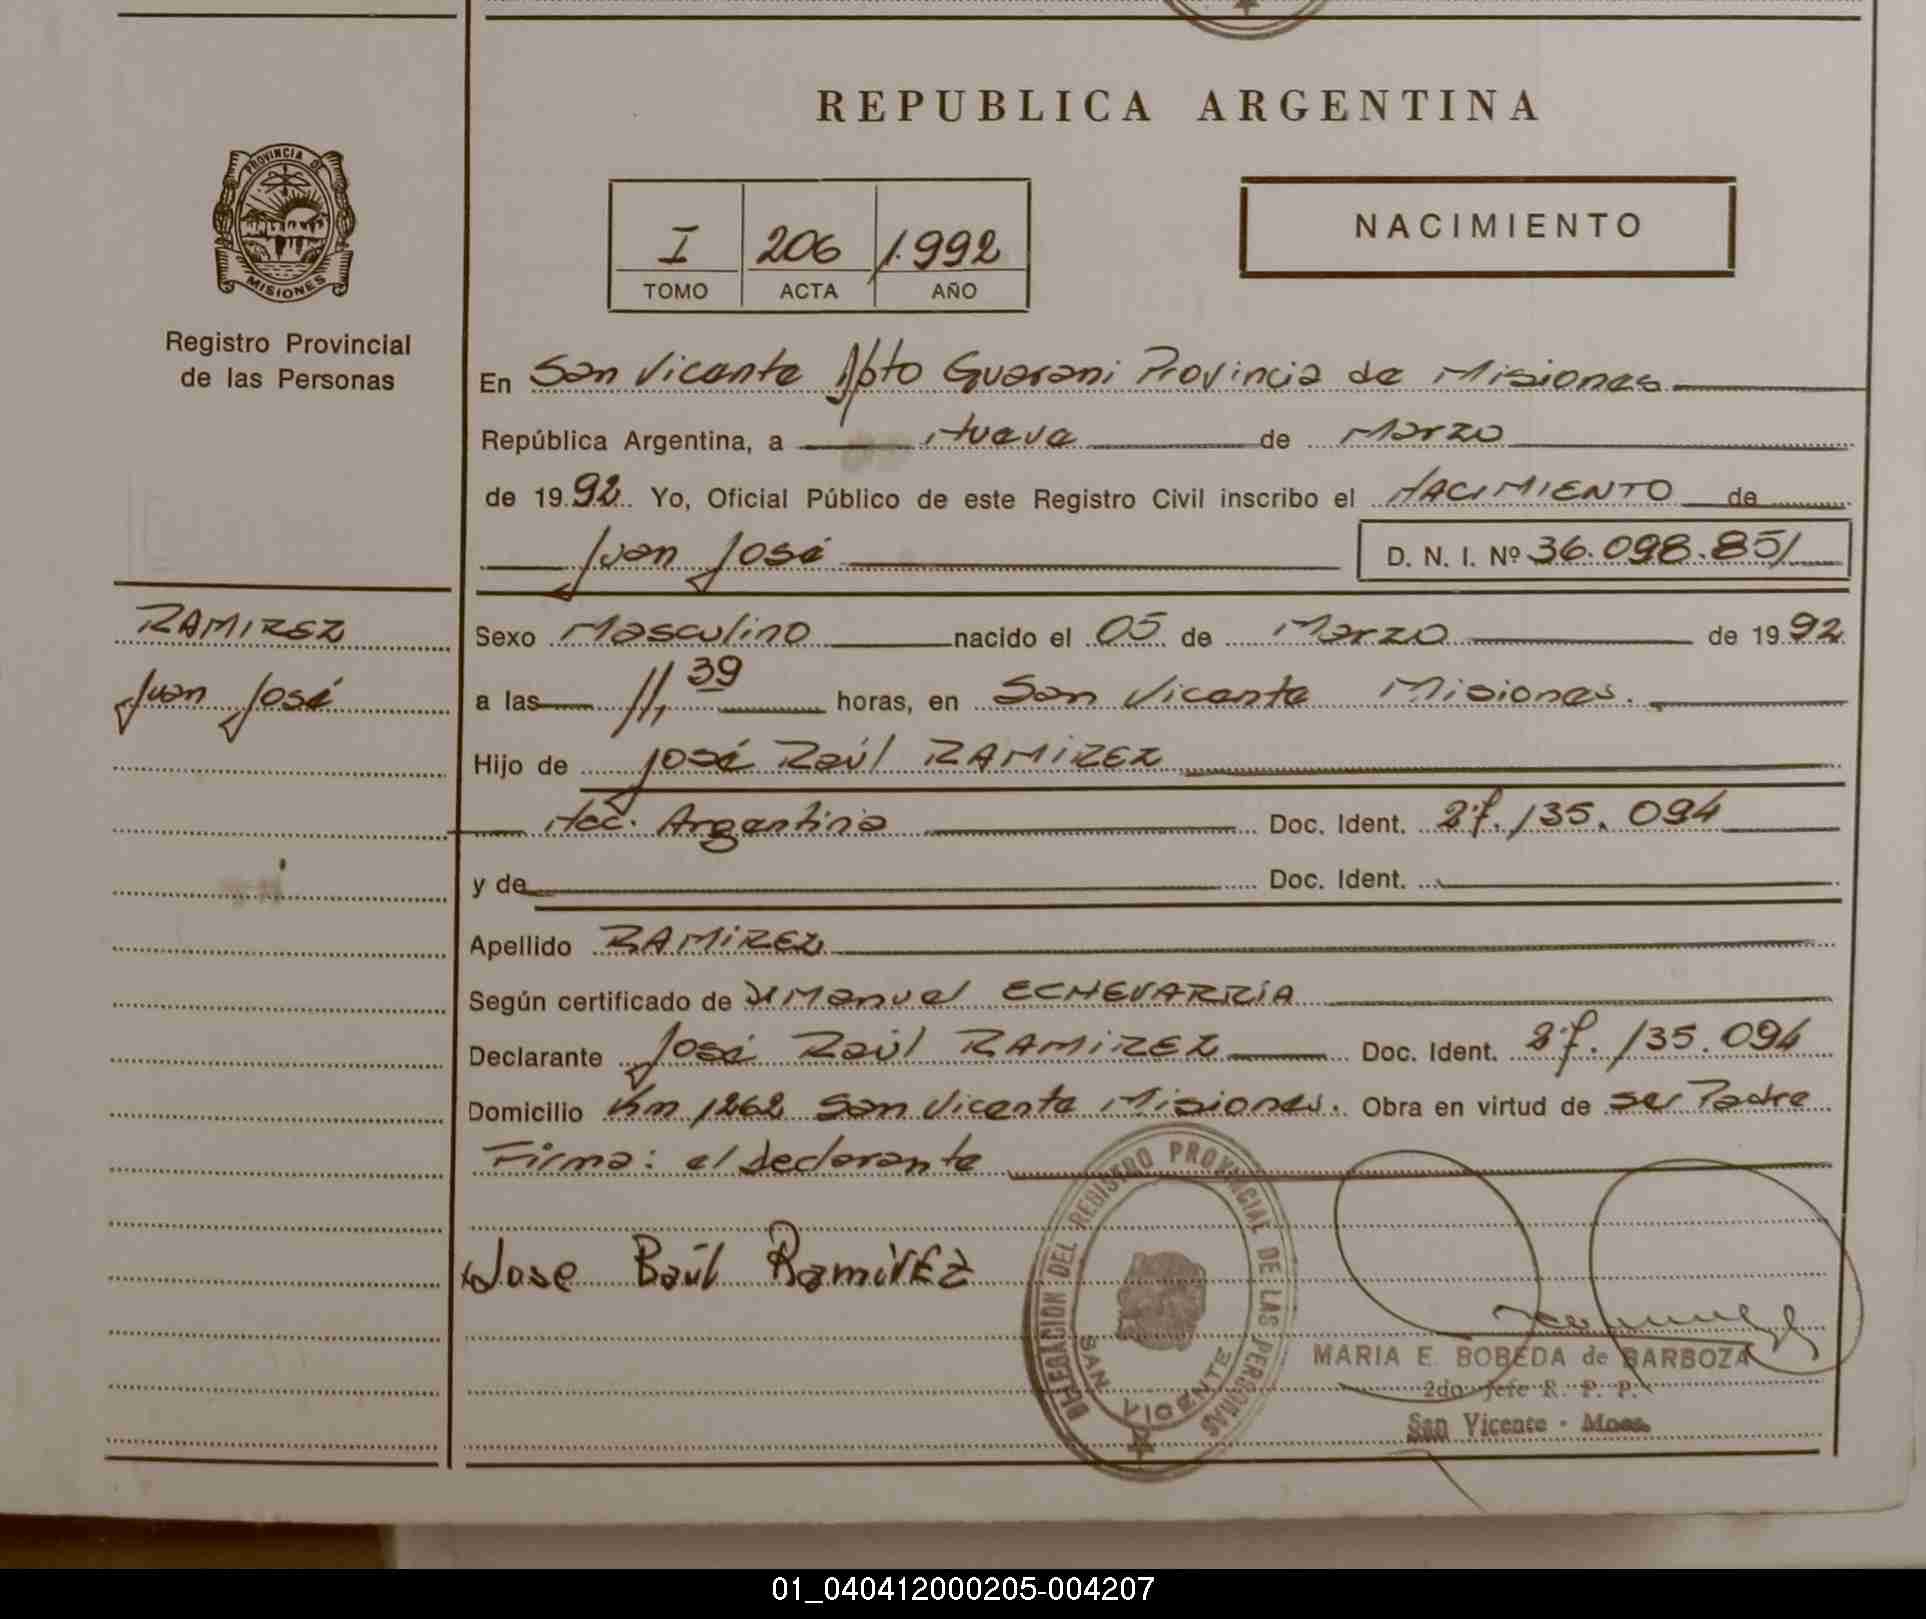 REPUBLICA ARGENTINA
PROVINCIA DE
MISIONES
Registro Provincial
de las Personas
I 206 1.992
TOMO ACTA AÑO
NACIMIENTO
En San Vicente Dpto Guarani Provincia de Misiones
República Argentina, a Nueve de Marzo
de 1992 Yo, Oficial Público de este Registro Civil inscribo el NACIMIENTO de
Juan José D. N. I. Nº 36.098.851
RAMIREZ
Juan José
Sexo Masculino nacido el 05 de Marzo de 1992
a las 11,39 horas, en San Vicente Misiones.
Hijo de José Raúl RAMIREZ
Nac. Argentina Doc. Ident. 27.135.094
y de Doc. Ident.
Apellido RAMIREZ
Según certificado de Manuel ECHEVARRÍA
Declarante José Raúl RAMIREZ Doc. Ident. 27.135.094
Domicilio Km 1262 San Vicente Misiones. Obra en virtud de ser Padre
Firma: el declarante
Jose Raúl RamirEz
DELEGACION DEL REGISTRO PROVINCIAL DE LAS PERSONAS
SAN VICENTE
MARIA E. BOBEDA de BARBOZA
2do. Jefe R. P. P.
San Vicente - Mnes.
01_040412000205-004207